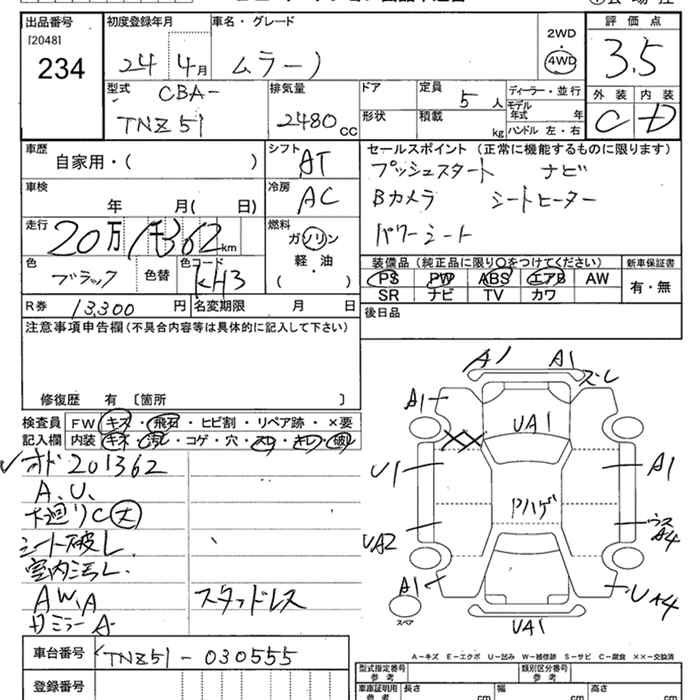 出品番号 初度登録年月 車名・グレード
[2048]
234
24 4月
ムラーノ
2WD
4WD
評価点
3.5
外装 内装
C D
型式 CBA-
TNZ51
排気量
2480cc
ドア
形状
定員 5人
積載 kg
ディーラー・並行
モデル年式 年
ハンドル 左・右
車歴
自家用・( )
シフト AT
セールスポイント (正常に機能するものに限ります)
プッシュスタート ナビ
Bカメラ シートヒーター
パワーシート
車検
年 月( 日)
冷房 AC
走行
20万1千362km
燃料
ガソリン
軽・油
( )
色 ブラック 色替 色コード KH3
装備品 (純正品に限り○をつけてください) 新車保証書
PS PW ABS エアB AW
SR ナビ TV カワ
有・無
R券 13,300円 名変期限 月 日
後日品
注意事項申告欄(不具合内容等は具体的に記入して下さい)
修復歴 有 [箇所 ]
検査員 FW キズ・飛石・ヒビ割・リペア跡・×要
記入欄 内装 キズ・汚レ・コゲ・穴・スレ・キレ・破レ
オド 201362
A.U.
下廻りC大
シート破レ
室内汚レ
AW,A スタッドレス
ミラーA
A1 A1 ズレ
A1
UA1
U1 A1
Pハゲ
UA2 ウスA4
A1 UA4
スペア
UA1
A-キズ E-エクボ U-凹み W-補修跡 S-サビ C-腐食 ××-交換済
車台番号 TNZ51-030555
登録番号
型式指定番号 参考 類別区分番号 参考
車庫証明用 参考 長さ cm 幅 cm 高さ cm